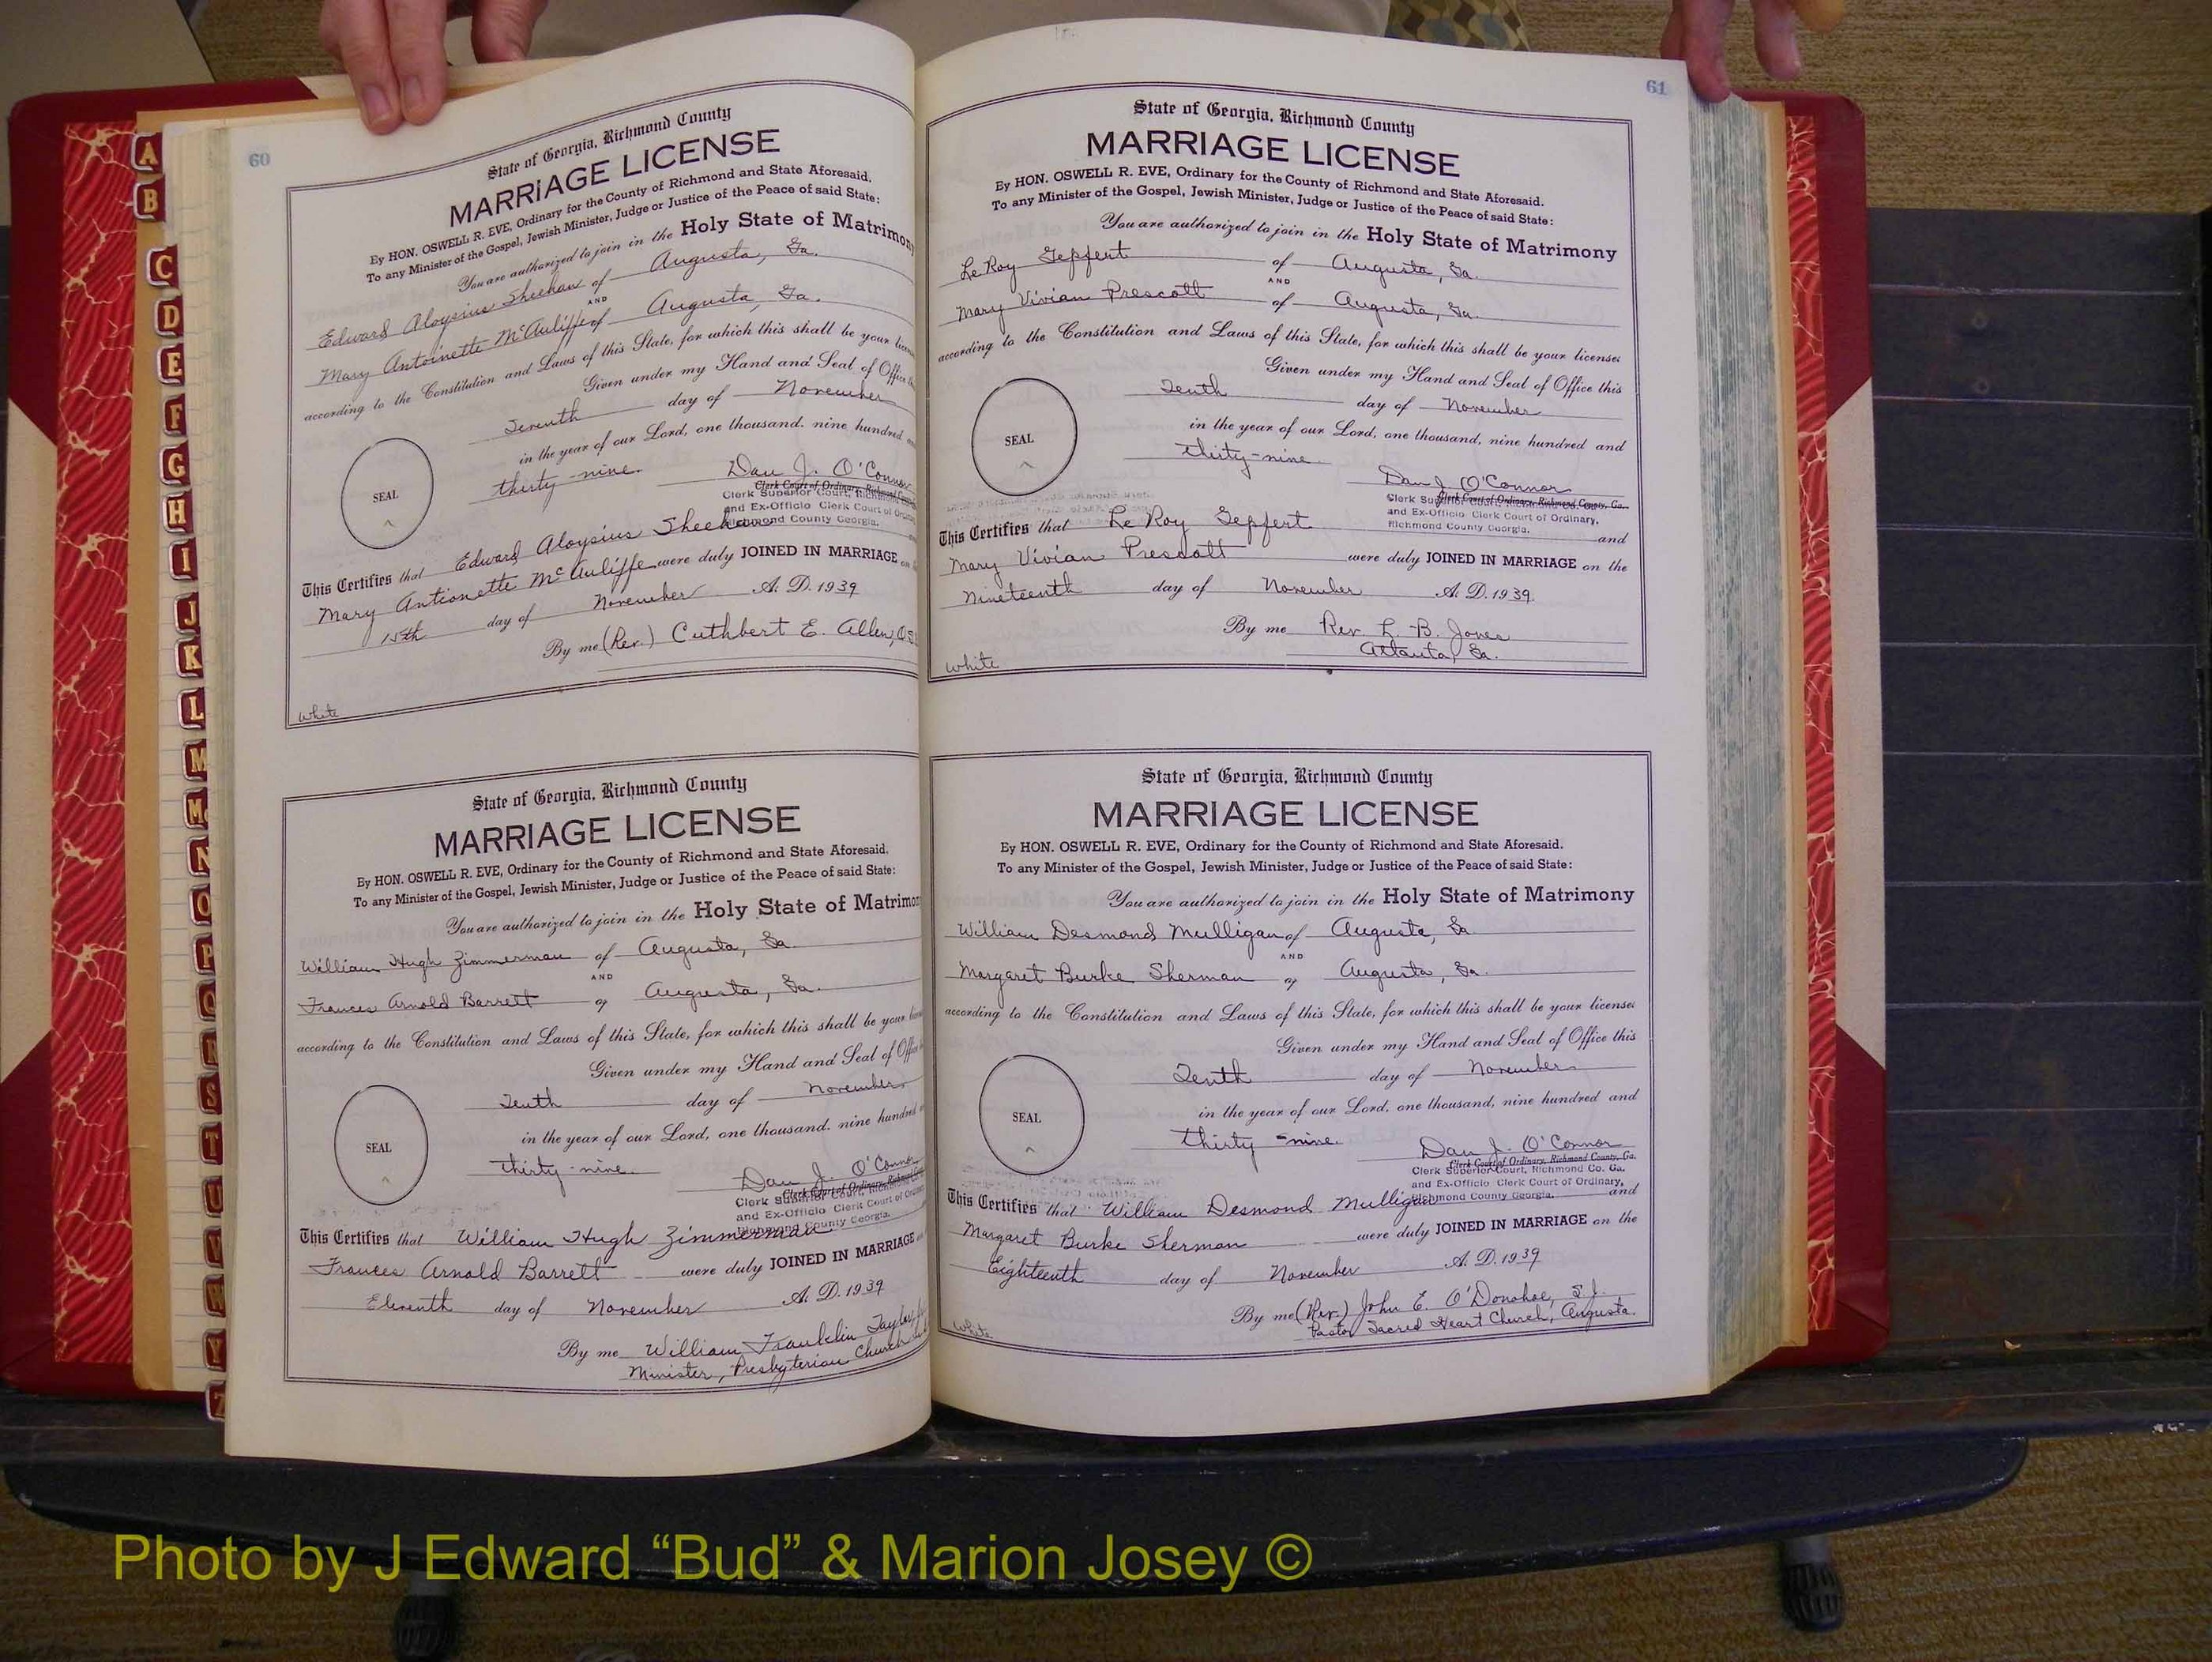 60
State of Georgia, Richmond County
MARRIAGE LICENSE
By HON. OSWELL R. EVE, Ordinary for the County of Richmond and State Aforesaid.
To any Minister of the Gospel, Jewish Minister, Judge or Justice of the Peace of said State:
You are authorized to join in the Holy State of Matrimony
Edward Aloysius Sheehan of Augusta, Ga.
AND
Mary Antoinette McAuliffe of Augusta, Ga.
according to the Constitution and Laws of this State, for which this shall be your
Given under my Hand and Seal of Office
Seventh day of November
in the year of our Lord, one thousand, nine hundred
thirty-nine.
SEAL
Dan J. O'Connor
Clerk Court of Ordinary, Richmond
Clerk Superior Court, Richmond
and Ex-Officio Clerk Court of
Richmond County Georgia.
This Certifies that Edward Aloysius Sheehan
Mary Antionette McAuliffe were duly JOINED IN MARRIAGE on
15th day of November A. D. 1939
By me (Rev.) Cuthbert E. Allen,
White
State of Georgia, Richmond County
MARRIAGE LICENSE
By HON. OSWELL R. EVE, Ordinary for the County of Richmond and State Aforesaid.
To any Minister of the Gospel, Jewish Minister, Judge or Justice of the Peace of said State:
You are authorized to join in the Holy State of Matrimony
William Hugh Zimmerman of Augusta, Ga.
AND
Frances Arnold Barrett of Augusta, Ga.
according to the Constitution and Laws of this State, for which this shall be your
Given under my Hand and Seal of Office
Tenth day of November
in the year of our Lord, one thousand, nine hundred
thirty-nine.
SEAL
Dan J. O'Connor
Clerk Court of Ordinary, Richmond
Clerk Superior Court, Richmond
and Ex-Officio Clerk Court of
Richmond County Georgia.
This Certifies that William Hugh Zimmerman
Frances Arnold Barrett were duly JOINED IN MARRIAGE
Eleventh day of November A. D. 1939
By me William Franklin Taylor
Minister, Presbyterian Church
61
State of Georgia, Richmond County
MARRIAGE LICENSE
By HON. OSWELL R. EVE, Ordinary for the County of Richmond and State Aforesaid.
To any Minister of the Gospel, Jewish Minister, Judge or Justice of the Peace of said State:
You are authorized to join in the Holy State of Matrimony
Le Roy Sepfert of Augusta, Ga.
AND
Mary Vivian Prescott of Augusta, Ga.
according to the Constitution and Laws of this State, for which this shall be your license:
Given under my Hand and Seal of Office this
Tenth day of November
in the year of our Lord, one thousand, nine hundred and
thirty-nine.
SEAL
Dan J. O'Connor
Clerk Court of Ordinary, Richmond County, Ga.
Clerk Superior Court, Richmond Co. Ga.
and Ex-Officio Clerk Court of Ordinary,
Richmond County Georgia.
This Certifies that Le Roy Sepfert and
Mary Vivian Prescott were duly JOINED IN MARRIAGE on the
Nineteenth day of November A. D. 1939.
By me Rev. L. B. Jones
Atlanta, Ga.
White
State of Georgia, Richmond County
MARRIAGE LICENSE
By HON. OSWELL R. EVE, Ordinary for the County of Richmond and State Aforesaid.
To any Minister of the Gospel, Jewish Minister, Judge or Justice of the Peace of said State:
You are authorized to join in the Holy State of Matrimony
William Desmond Mulligan of Augusta, Ga
AND
Margaret Burke Sherman of Augusta, Ga.
according to the Constitution and Laws of this State, for which this shall be your license:
Given under my Hand and Seal of Office this
Tenth day of November
in the year of our Lord, one thousand, nine hundred and
thirty-nine.
SEAL
Dan J. O'Connor
Clerk Court of Ordinary, Richmond County, Ga.
Clerk Superior Court, Richmond Co. Ga.
and Ex-Officio Clerk Court of Ordinary,
Richmond County Georgia.
This Certifies that William Desmond Mulligan and
Margaret Burke Sherman were duly JOINED IN MARRIAGE on the
Eighteenth day of November A. D. 1939
By me (Rev.) John E. O'Donohoe, S.J.
Pastor Sacred Heart Church, Augusta.
White
A
B
C
D
E
F
G
H
I
J
K
L
M
Mc
N
O
P
Q
R
S
T
U
V
W
Y
Z
Photo by J Edward “Bud” & Marion Josey ©